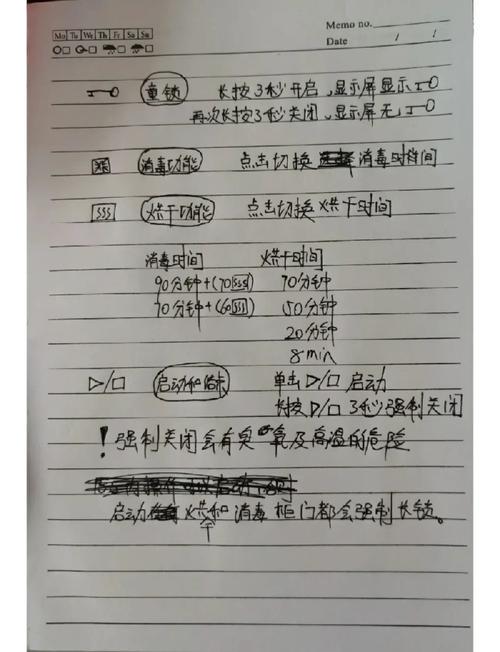 Mo Tu We Th Fr Sa Su
Memo no.
Date / /
童锁 长按3秒开启,显示屏显示
再次长按3秒关闭,显示屏无
消毒功能 点击切换 消毒时间
烘干功能 点击切换烘干时间
消毒时间 烘干时间
90分钟+(70) 70分钟
70分钟+(60) 50分钟
20分钟
8min
▷/□ 启动和 单击▷/□ 启动
长按▷/□ 3秒强制关闭
!强制关闭会有臭氧及高温的危险
启动烘干和消毒 柜门都会强制长锁。